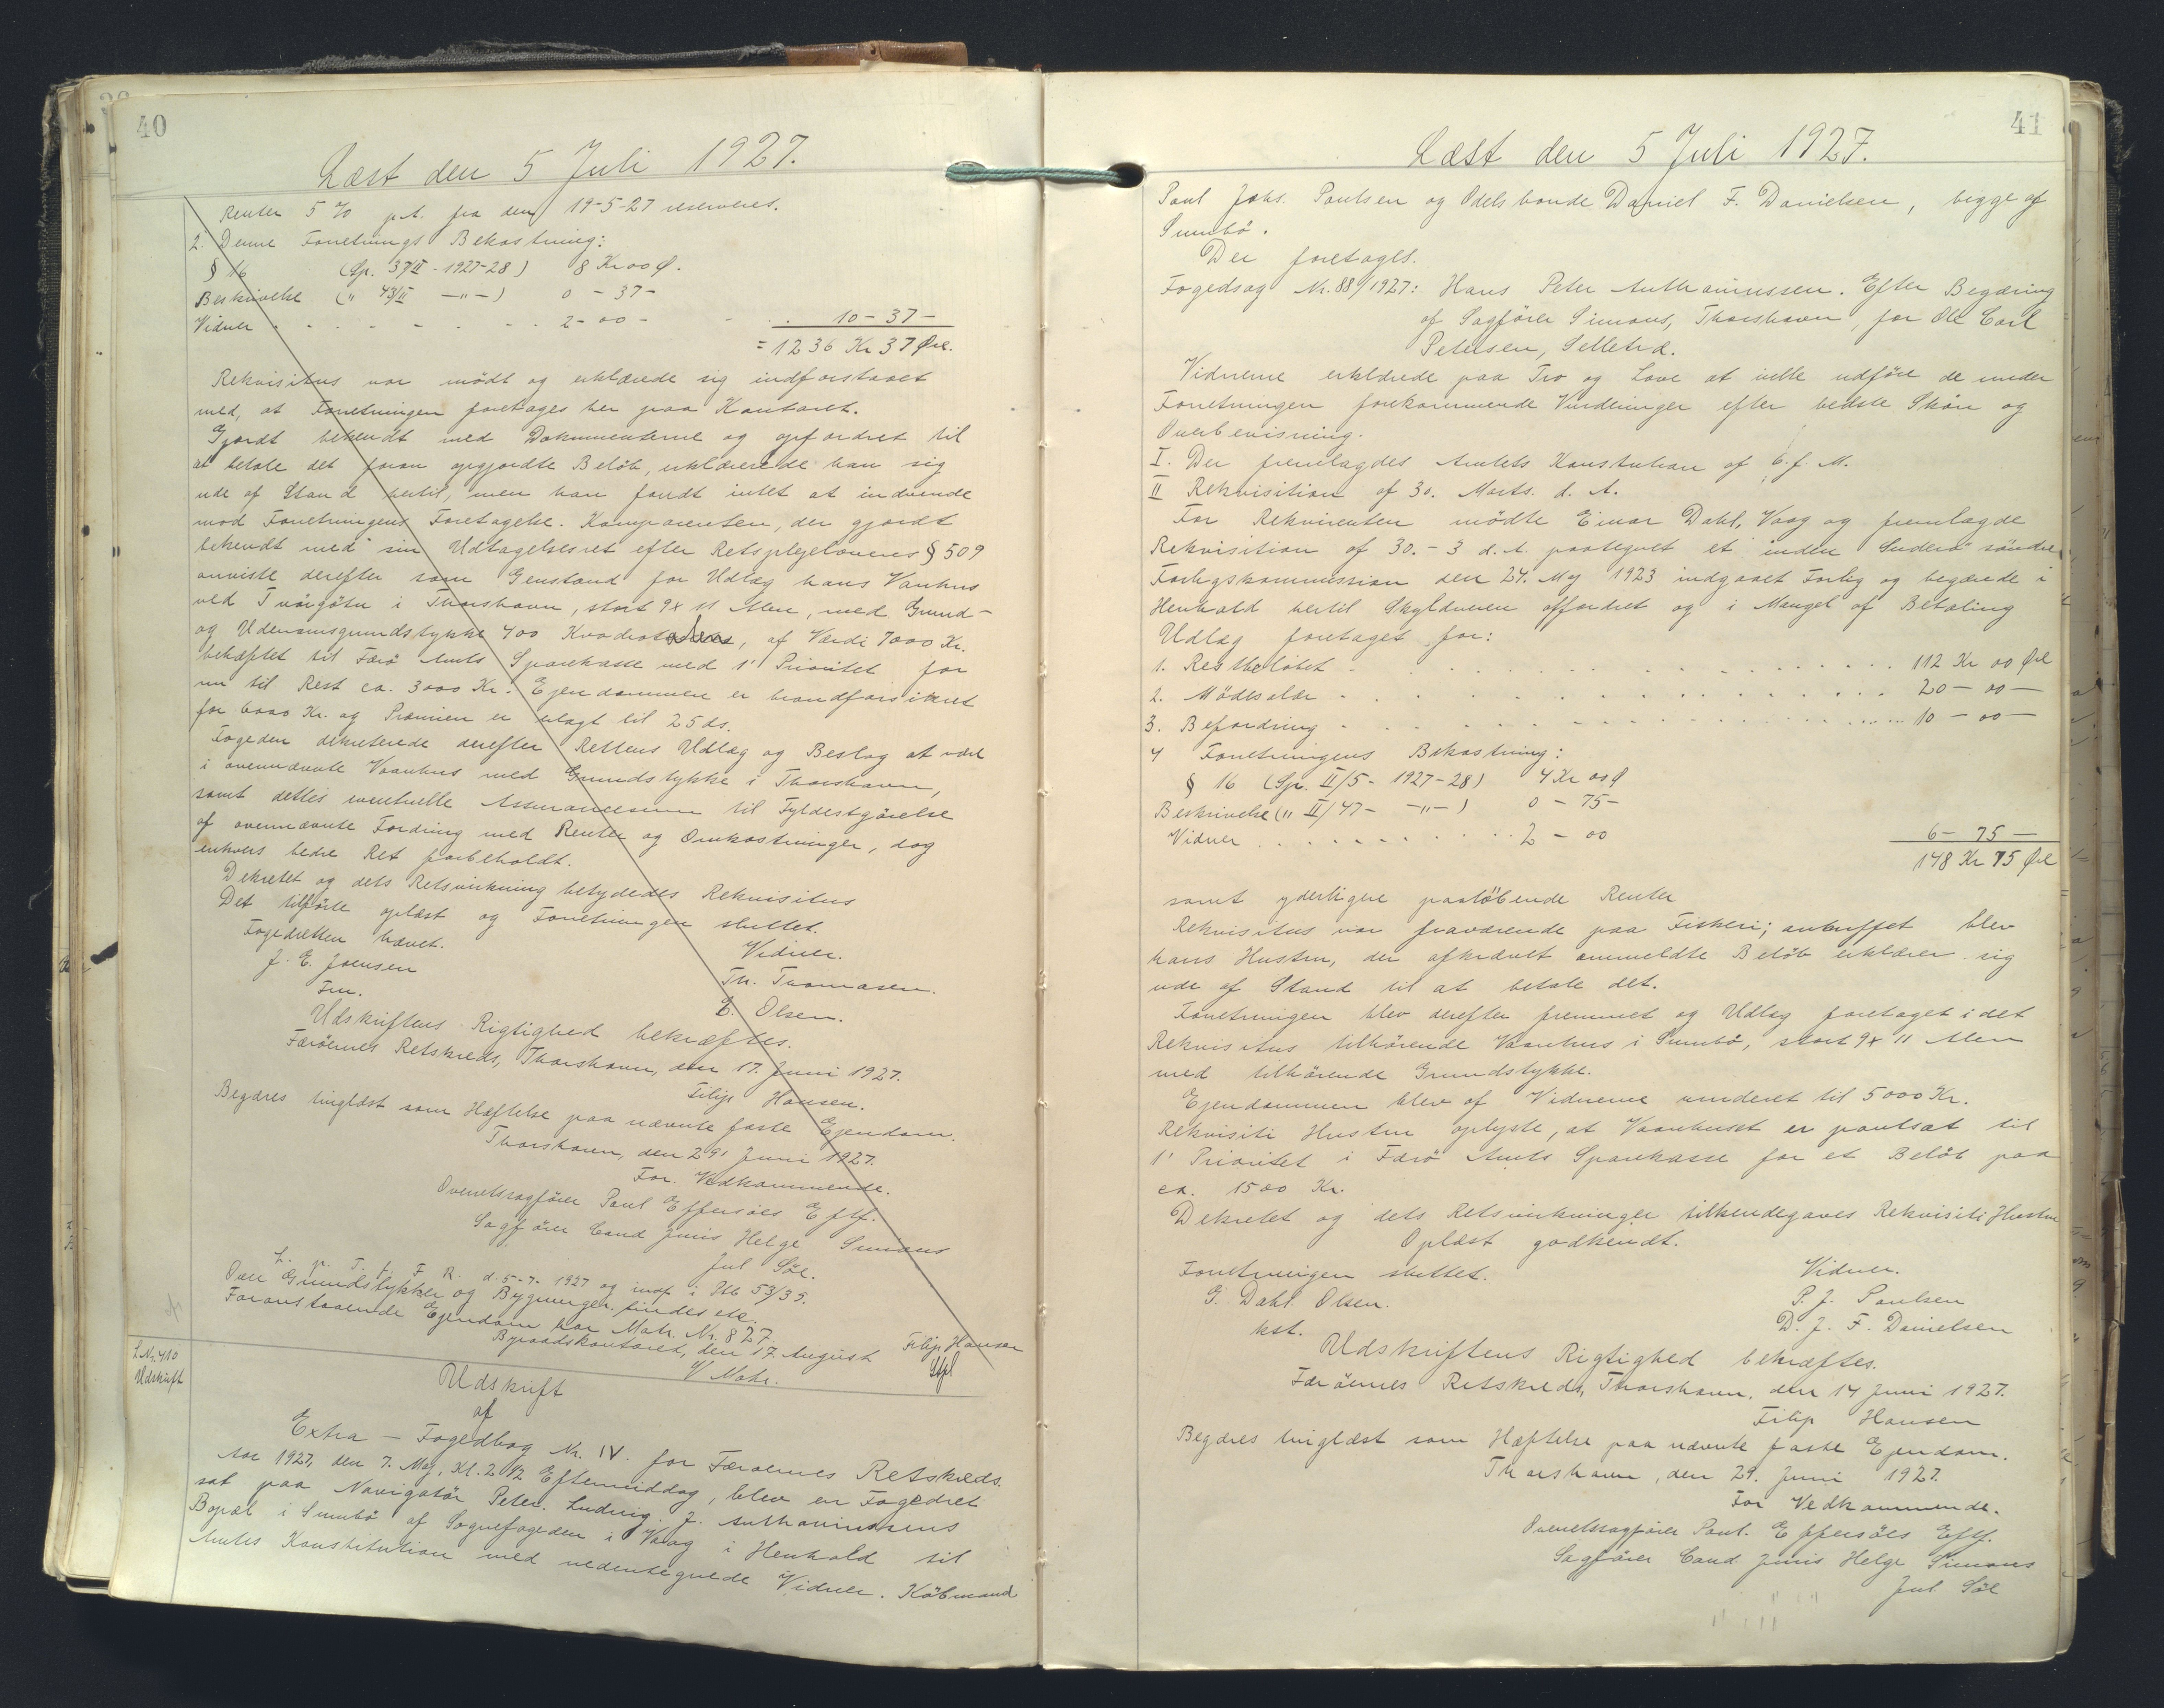 40
Læst den 5 Juli 1927.
Renter 5 % p.A. fra den 19-5-27 reserveres.
2. Denne Forretnings Bekostning:
§ 16 (Sp. 37/II - 1927-28) 8 Kr 00 Ø.
Beskrivelse (" 43/II -"-) 0 - 37 -
Vidner . - - - - - . . 2 - 00 - - . 10 - 37 -
= 1236 Kr 37 Øre.
Rekvisitus var mødt og erklærede sig indforstaaet
med, at Forretningen foretages her paa Kontoret.
Gjordt bekendt med Dokumenterne og opfordret til
at betale det foran opgjordte Beløb, erklærede han sig
ude af Stand hertil, men han fandt intet at indvende
mod Forretningens Foretagelse. Komparenten, der gjordt
bekendt med sin Udtagelsesret efter Retsplejelovens § 509
anviste derefter som Genstand for Udlæg hans Vaanhus
ved Tvörgöta i Thorshavn, stort 9 x 11 Alen, med Grund-
og Udenomsgrundstykke 400 Kvadratalen, af Værdi 7000 Kr.
behæftet til Færø Amts Sparekasse med 1' Prioritet for
nu til Rest ca. 3000 Kr. Ejendommen er brandforsikret
for 6000 Kr. og Præmien er erlagt til 25 ds.
Fogeden dekreterede derefter Rettens Udlæg og Beslag at være
i ovennævnte Vaanhus med Grundstykke i Thorshavn,
samt dettes eventuelle Assurancesum til Fyldestgørelse
af ovennævnte Fordring med Renter og Omkostninger, dog
enhvers bedre Ret forbeholdt.
Dekretet og dets Retsvirkning betydedes Rekvisitus
Det tilførte oplæst og Forretningen sluttet.
Fogedretten hævet. Vidner.
J. E. Joensen Th. Thomasen.
Fm. D. Olsen.
Udskriftens Rigtighed bekræftes.
Færøernes Retskreds, Thorshavn, den 17. Juni 1927.
Filip Hansen.
Begæres tinglæst som Hæftelse paa nævnte faste Ejendom.
Thorshavn, den 29' Juni 1927.
For Vedkommende.
Overretssagfører Poul Effersöes Eftf.
Sagfører Cand Juris Helge Simons
Jul Söe.
L. p. T. f. F R. d. 5-7- 1927 og indf i Ptb 53/35.
Over Grundstykker og Bygninger findes etc.
Foranstaaende Ejendom har Matr. Nr. 827.
Byraadskontoret, den 17 August Filip Hansen
V Mohr. Stfl
L Nr. 410
Udskrift
Udskrift
af
Extra - Fogedbog Nr. IV. for Færøernes Retskreds.
Aar 1927, den 7. Maj, Kl. 2 1/2 Eftermiddag, blev en Fogedret
sat paa Navigatör Peter Ludvig J. Anthoniussens
Bopæl i Sumbö af Sognefogeden i Vaag i Henhold til
Amtes Konstitution med nedentegnede Vidner. Köbmand
41
Læst den 5 Juli 1927.
Poul Johs. Poulsen og Odelsbonde Daniel F. Danielsen, begge af
Sumbö.
Der foretages.
Fogedsag Nr. 88/1927: Hans Peter Anthoniussen. Efter Begæring
af Sagförer Simons, Thorshavn, for Ole Carl
Petersen, Selletræ.
Vidnerne erklærede paa Tro og Love at ville udföre de under
Forretningen forekommende Vurderinger efter bedste Skön og
Overbevisning.
I. Der fremlagdes Amtets Konstitution af 6. f. M.
II Rekvisition af 30. Marts. d. A.
For Rekvirenten mödte Einar Dahl, Vaag og fremlagde
Rekvisition af 30.-3 d. A. paategnet et inden Suderö söndre
Forligskommission den 24. Maj 1923 indgaaet Forlig og begærede i
Henhold hertil Skyldneren affordret og i Mangel af Betaling
Udlæg foretaget for:
1. Restbelöbet - . . . . . . . . 112 Kr 00 Øre
2. Mödesalær - . . . . . . . . 20 - 00 -
3. Befordring - . . . . . . . . 10 - 00 -
4 Forretningens Bekostning:
§ 16 (Sp. II/5 - 1927-28) 4 Kr 00 Ø
Beskrivelse (" II/47 - -"-) 0 - 75 -
Vidner . . . . . . . . 2 - 00 6 - 75 -
148 Kr 75 Øre
samt yderligere paalöbende Renter
Rekvisitus var fraværende paa Fiskeri; antruffet blev
hans Hustru, der afkrævet anmeldte Belöb erklærer sig
ude af Stand til at betale det.
Forretningen blev derefter fremmet og Udlæg foretaget i det
Rekvisitus tilhörende Vaanhus i Sumbö, stort 9 x 11 Alen
med tilhörende Grundstykke.
Ejendommen blev af Vidnerne vurderet til 5000 Kr.
Rekvisiti Hustru oplyste, at Vaanhuset er pantsat til
1' Prioritet i Færö Amts Sparekasse for et Belöb paa
ca. 1500 Kr.
Dekretet og dets Retsvirkninger tilkendegaves Rekvisiti Hustru
Oplæst godkendt.
Forretningen sluttet. Vidner.
G. Dahl Olsen. P. J. Poulsen
kst. D. J. F. Danielsen
Udskriftens Rigtighed bekræftes.
Færöernes Retskreds, Thorshavn, den 14 Juni 1927.
Filip Hansen
Begæres tinglæst som Hæftelse paa nævnte faste Ejendom.
Thorshavn, den 29. Juni 1927.
For Vedkommende.
Overretssagförer Poul. Effersöes Eftf.
Sagförer Cand Juris Helge Simons
Jul Söe